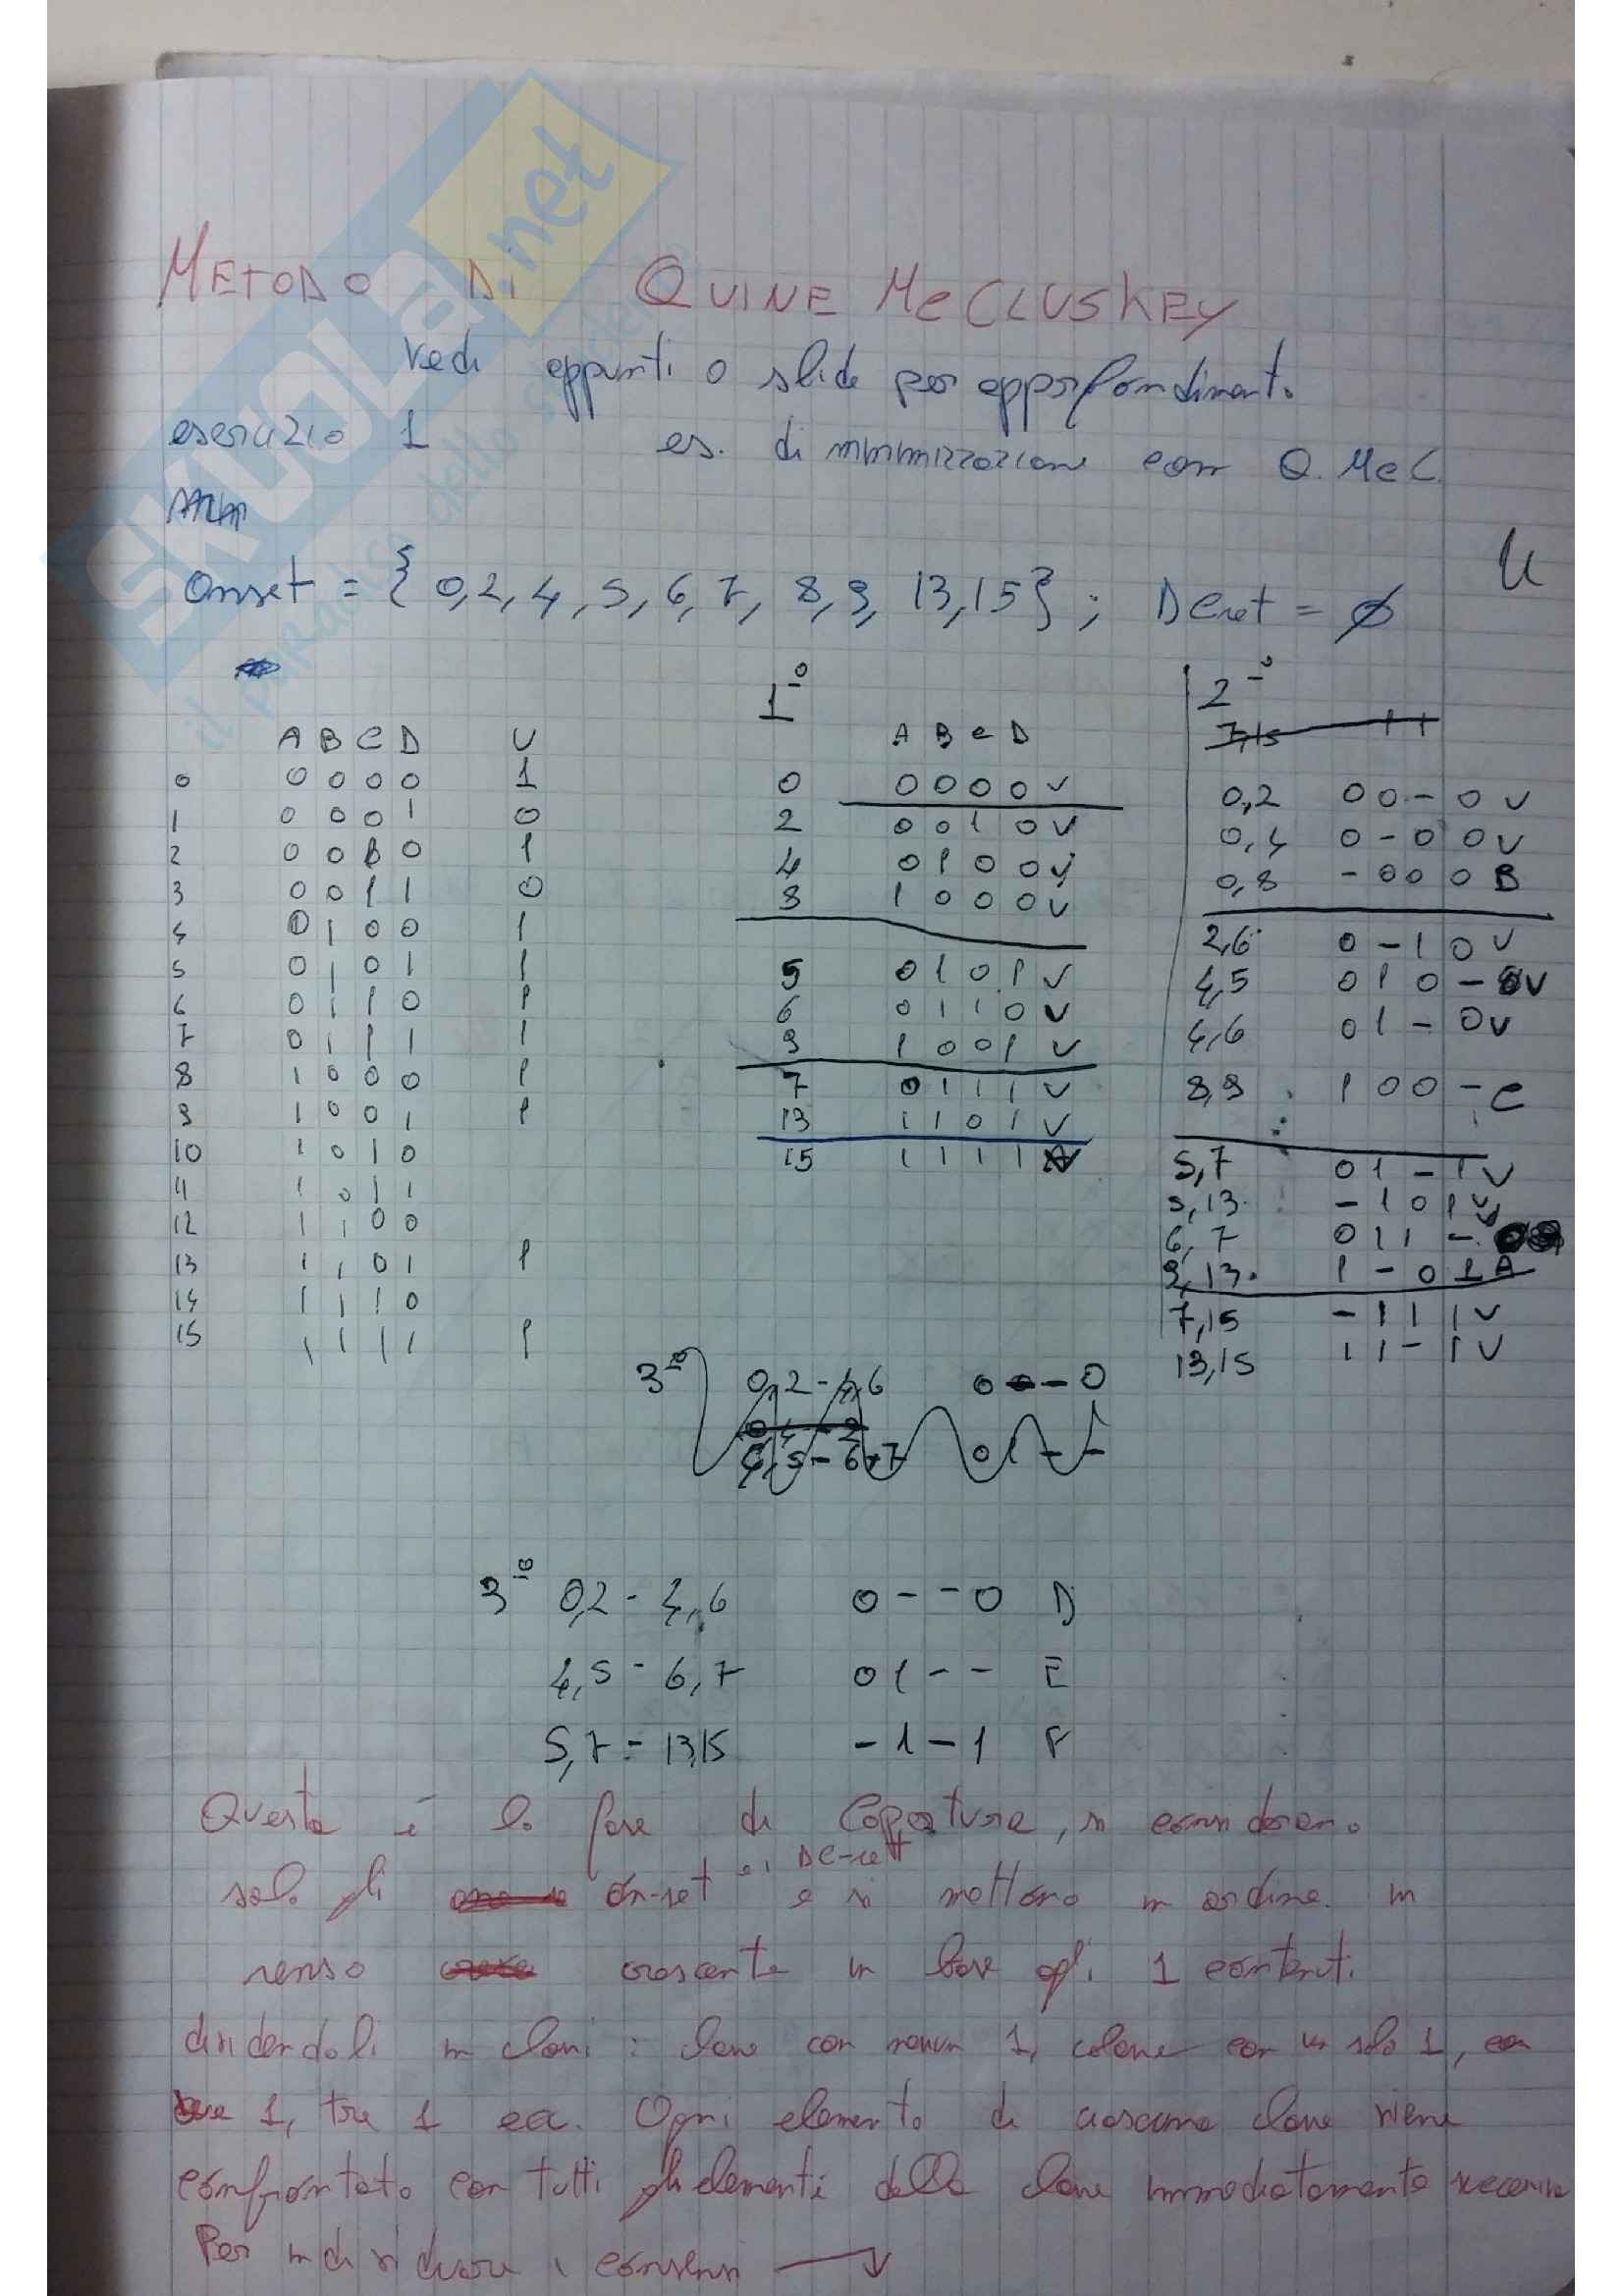 METODO DI QUINE McCLUSKEY
Vedi appunti o slide per approfondimenti
esercizio 1 es. di minimizzazione con Q. McC.
Onset = { 0,2,4,5,6,7,8,9,13,15}; DCset = ∅
1º
A B C D U
0 0 0 0 0 1
1 0 0 0 1 0
2 0 0 1 0 1
3 0 0 1 1 0
4 0 1 0 0 1
5 0 1 0 1 1
6 0 1 1 0 1
7 0 1 1 1 1
8 1 0 0 0 1
9 1 0 0 1 1
10 1 0 1 0
11 1 0 1 1
12 1 1 0 0
13 1 1 0 1 1
14 1 1 1 0
15 1 1 1 1 1
A B C D
0 0 0 0 0 v
2 0 0 1 0 v
4 0 1 0 0 v
8 1 0 0 0 v
5 0 1 0 1 v
6 0 1 1 0 v
9 1 0 0 1 v
7 0 1 1 1 v
13 1 1 0 1 v
15 1 1 1 1
2º
7,15
0,2 0 0 - 0 v
0,4 0 - 0 0 v
0,8 - 0 0 0 B
2,6 0 - 1 0 v
4,5 0 1 0 - v
4,6 0 1 - 0 v
8,9 1 0 0 - C
5,7 0 1 - 1 v
5,13 - 1 0 1 v
6,7 0 1 1 -
9,13 1 - 0 1 A
7,15 - 1 1 1 v
13,15 1 1 - 1 v
3º 0,2 - 4,6 0 - - 0
4,5 - 6,7 0 1 - -
3º 0,2 - 4,6 0 - - 0 D
4,5 - 6,7 0 1 - - E
5,7 - 13,15 - 1 - 1 F
Questa è la fase di Copertura, si considerano
solo gli on-set e i DC-set e si mettono in ordine in
senso crescente in base agli 1 contenuti
dividendoli in classi: classe con nessun 1, classe con un solo 1, con
due 1, tre 1 ecc. Ogni elemento di ciascuna classe viene
confrontato con tutti gli elementi della classe immediatamente successiva
Per individuare i consensi →